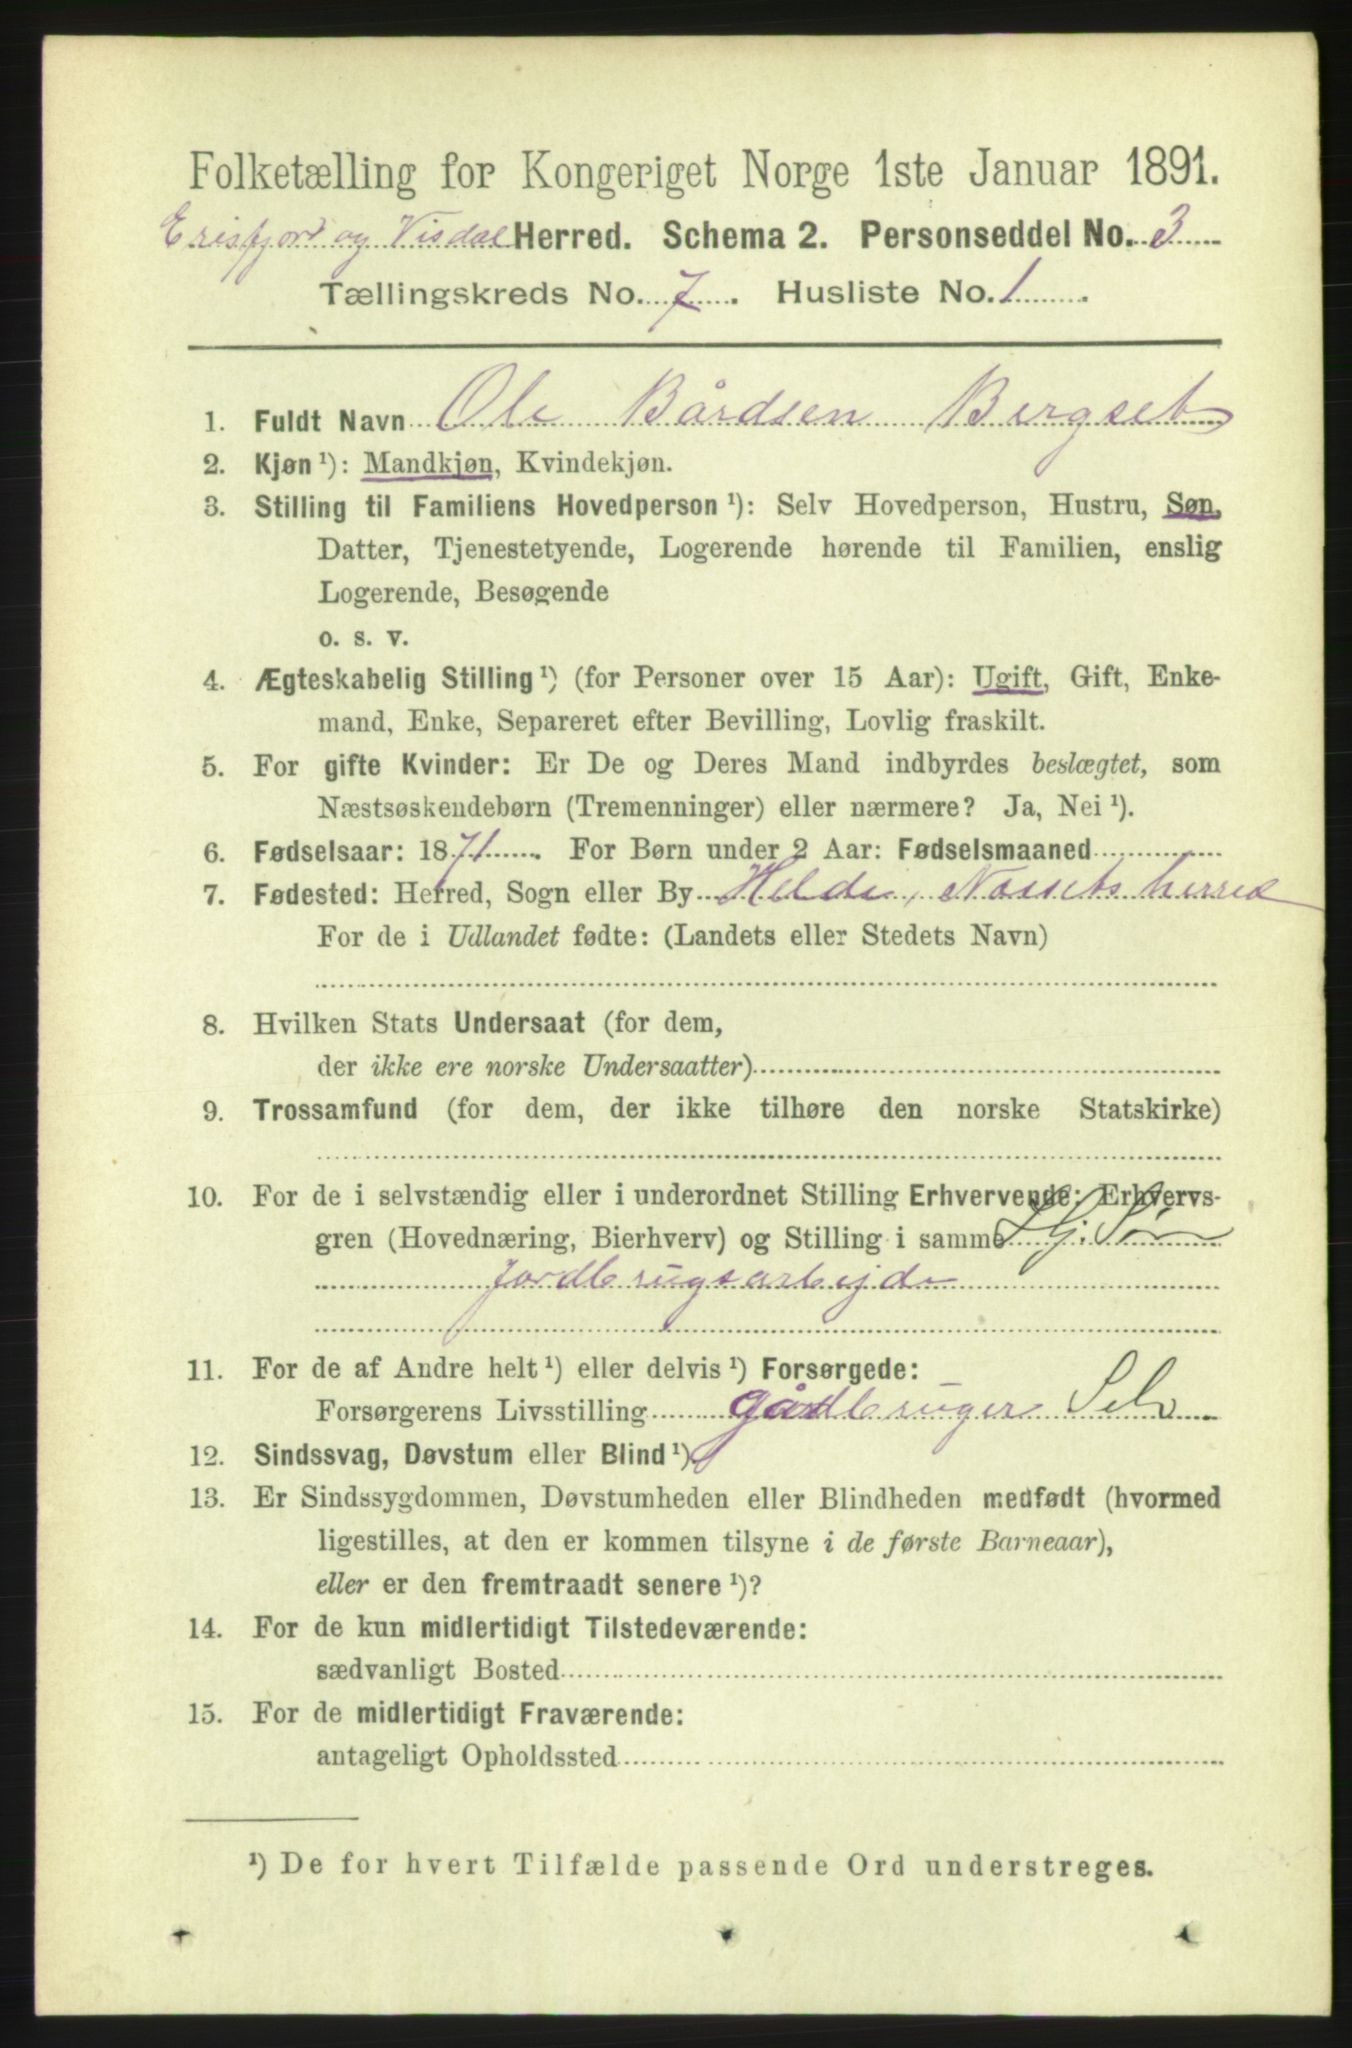 Folketælling for Kongeriget Norge 1ste Januar 1891.
Erisfjord og Visdal Herred. Schema 2. Personseddel No. 3
Tællingskreds No. 7. Husliste No. 1.
1. Fuldt Navn Ole Bårdsen Bergset
2. Kjøn ¹): Mandkjøn, Kvindekjøn.
3. Stilling til Familiens Hovedperson ¹): Selv Hovedperson, Hustru, Søn,
Datter, Tjenestetyende, Logerende hørende til Familien, enslig
Logerende, Besøgende
o. s. v.
4. Ægteskabelig Stilling ¹) (for Personer over 15 Aar): Ugift, Gift, Enke-
mand, Enke, Separeret efter Bevilling, Lovlig fraskilt.
5. For gifte Kvinder: Er De og Deres Mand indbyrdes beslægtet, som
Næstsøskendebørn (Tremenninger) eller nærmere? Ja, Nei ¹).
6. Fødselsaar: 1871. For Børn under 2 Aar: Fødselsmaaned
7. Fødested: Herred, Sogn eller By Helde, Nøsset herred
For de i Udlandet fødte: (Landets eller Stedets Navn)
8. Hvilken Stats Undersaat (for dem,
der ikke ere norske Undersaatter)
9. Trossamfund (for dem, der ikke tilhøre den norske Statskirke)
10. For de i selvstændig eller i underordnet Stilling Erhvervende: Erhvervs-
gren (Hovednæring, Bierhverv) og Stilling i samme Søn
Jordbrugsarbejde
11. For de af Andre helt ¹) eller delvis ¹) Forsørgede:
Forsørgerens Livsstilling gårdbruger Selv
12. Sindssvag, Døvstum eller Blind ¹).
13. Er Sindssygdommen, Døvstumheden eller Blindheden medfødt (hvormed
ligestilles, at den er kommen tilsyne i de første Barneaar),
eller er den fremtraadt senere ¹)?
14. For de kun midlertidigt Tilstedeværende:
sædvanligt Bosted
15. For de midlertidigt Fraværende:
antageligt Opholdssted
¹) De for hvert Tilfælde passende Ord understreges.